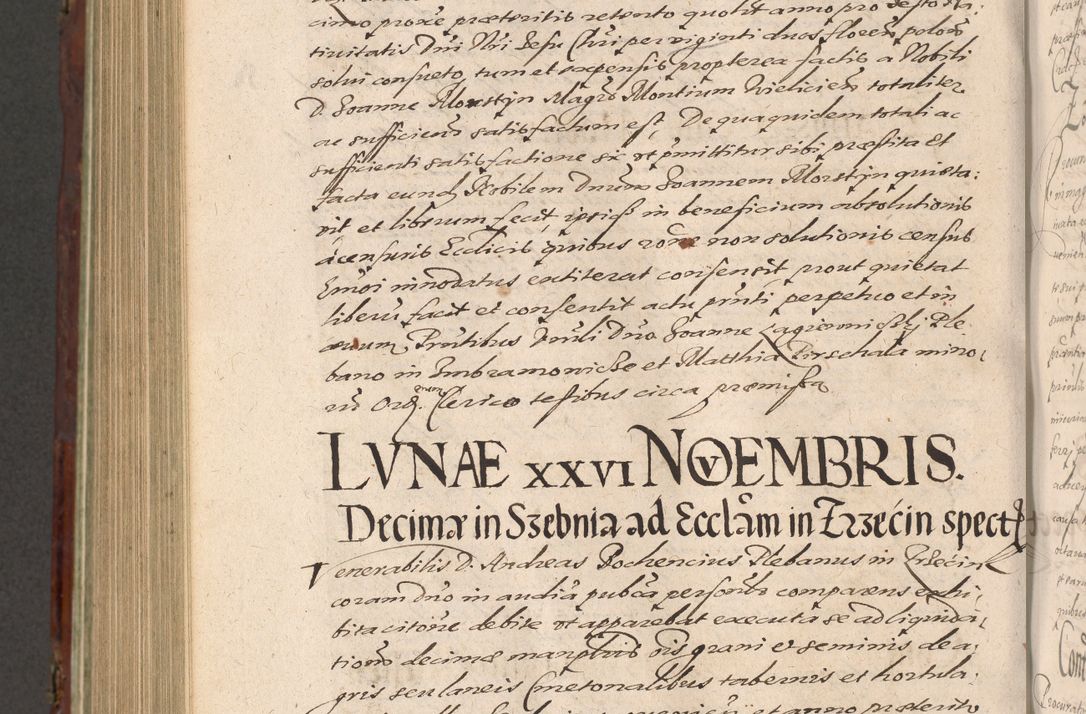 cimo proxe præteritis retento quolit anno pro festo Na:
tiuitatis Dni Nri Iesu Chri per viginti duos floren polon
solui consueto, tum et expensis propterea factis a Nobili
D. Joanne Morstyn Magro Montium Vielicien totaliter
ac sufficienter satisfactum est, De qua quidem totali ac
sufficienti satisfactione sic ut pmittitur sibi præstita et
facta eund Nobilem Dnum Joannem Morstyn quieta:
uit et liberum fecit, ipsiq in beneficium absolutionis
à censuris Ecclicis quibus rone non solutionis census
innodatus extiterat consensit, prout quietat
liberu facit et consentit actu prnti perpetuo et in
æuum, Prntibus Dno Joanne Ple
bano in Imbramowicze et Matthia mino:
ru Ord. Clerico testibus circa præmissa
LVNAE XXVI NOVEMBRIS.
Decimæ in Szebnia ad Ecclam in Trzećin spect
Venerabilis D. Andreas Bochencius Plebanus in Trzećin
coram Dno in audia pubca personlr comparens exhi:
bita citone debite ut apparebat executa se ad liquida:
tionem decimæ manplis ois grani et seminis de a:
gris seu laneis Cmetonalibus tabernis et hortula:
et anno præterito